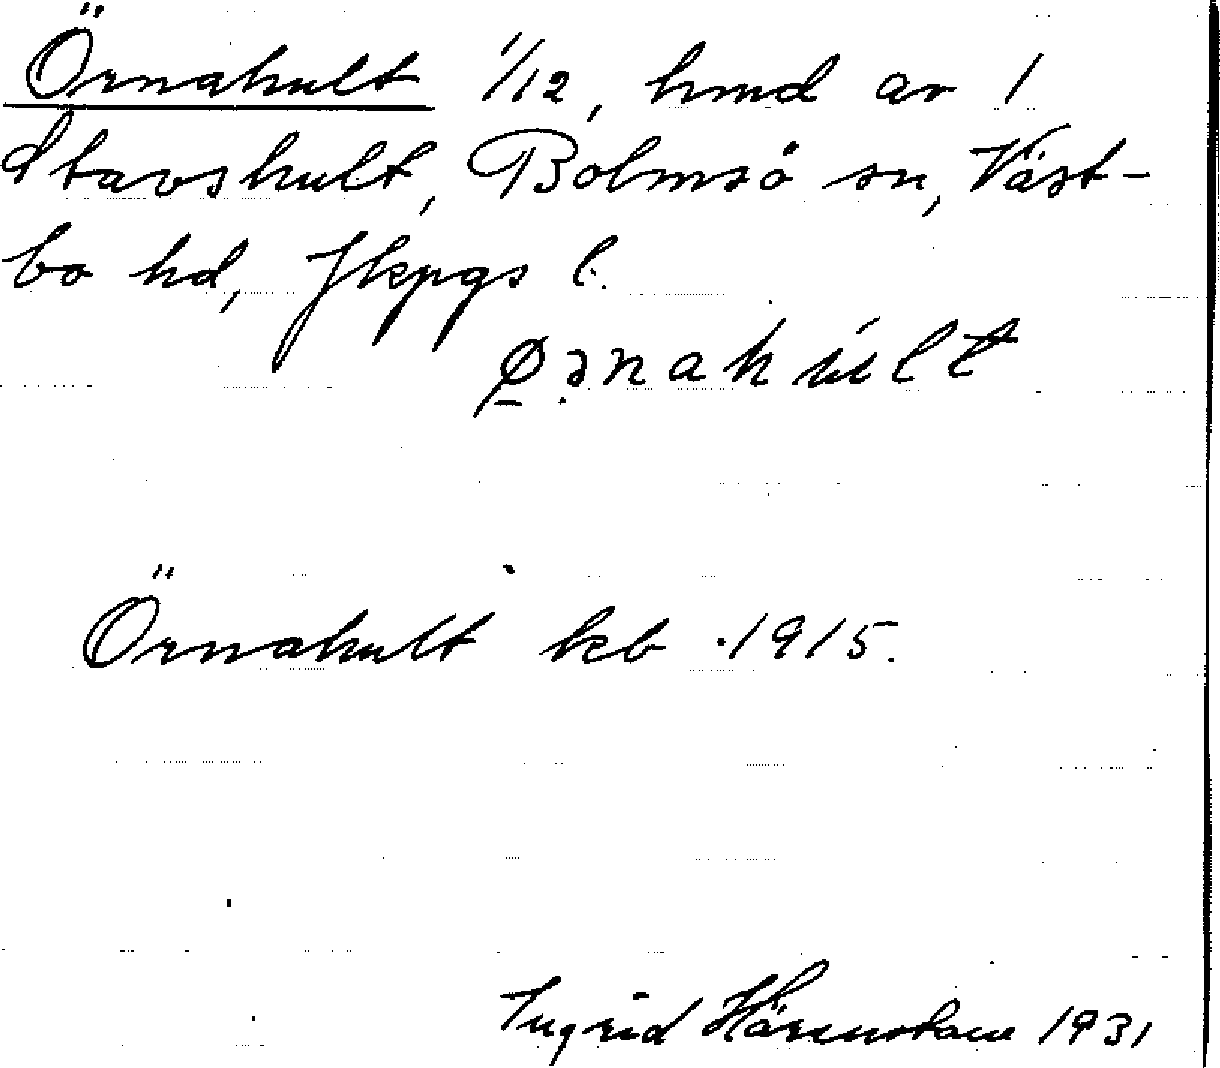 Örnahult 1/12, hmd av 1
Stavshult, Bolmsö sn, Väst-
bo hd, Jkpgs l.
Örnahult kb 1915.
Ingrid Härenstam 1931